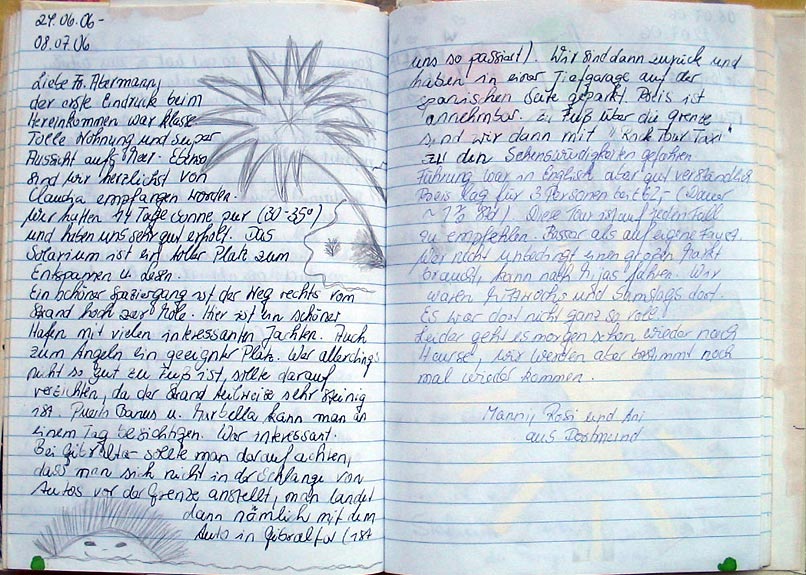 24.06.06-
08.07.06
Liebe Fr. Abermann,
der erste Eindruck beim
Hereinkommen war klasse
Tolle Wohnung und super
Aussicht aufs Meer. Ebenso
sind wir herzlichst von
Claudia empfangen worden.
Wir hatten 14 Tage Sonne pur (30-35°)
und haben uns sehr gut erholt. Das
Solarium ist ein toller Platz zum
Entspannen u. lesen.
Ein schöner Spaziergang ist der Weg rechts vom
Strand hoch zur Mole. Hier ist ein schöner
Hafen mit vielen interessanten Jachten. Auch
zum Angeln ein geeigneter Platz. Wer allerdings
nicht so gut zu Fuß ist, sollte darauf
verzichten, da der Strand teilweise sehr steinig
ist. Puerto Banus u. Marbella kann man an
einem Tag besichtigen. War interessant.
Bei Gibraltar sollte man darauf achten,
dass man sich nicht in der Schlange von
Autos vor der Grenze anstellt, man landet
dann nämlich mit dem
Auto in Gibraltar (ist
uns so passiert). Wir sind dann zurück und
haben in einer Tiefgarage auf der
spanischen Seite geparkt. Preis ist
annehmbar. Zu Fuß über die Grenze
sind wir dann mit "Rock Tour Taxi"
zu den Sehenswürdigkeiten gefahren
Führung war in Englisch aber gut verständlich
Preis lag für 3 Personen bei 62,- (Dauer
~ 1½ Std). Diese Tour ist auf jedem Fall
zu empfehlen. Besser als auf eigene Faust
Wer nicht unbedingt einen großen Markt
braucht, kann nach Mijas fahren. Wir
waren Mittwochs und Samstags dort.
Es war dort nicht ganz so voll.
Leider geht es morgen schon wieder nach
Hause, wir werden aber bestimmt noch
mal wieder kommen.
Manni, Rosi und Ani
aus Dortmund